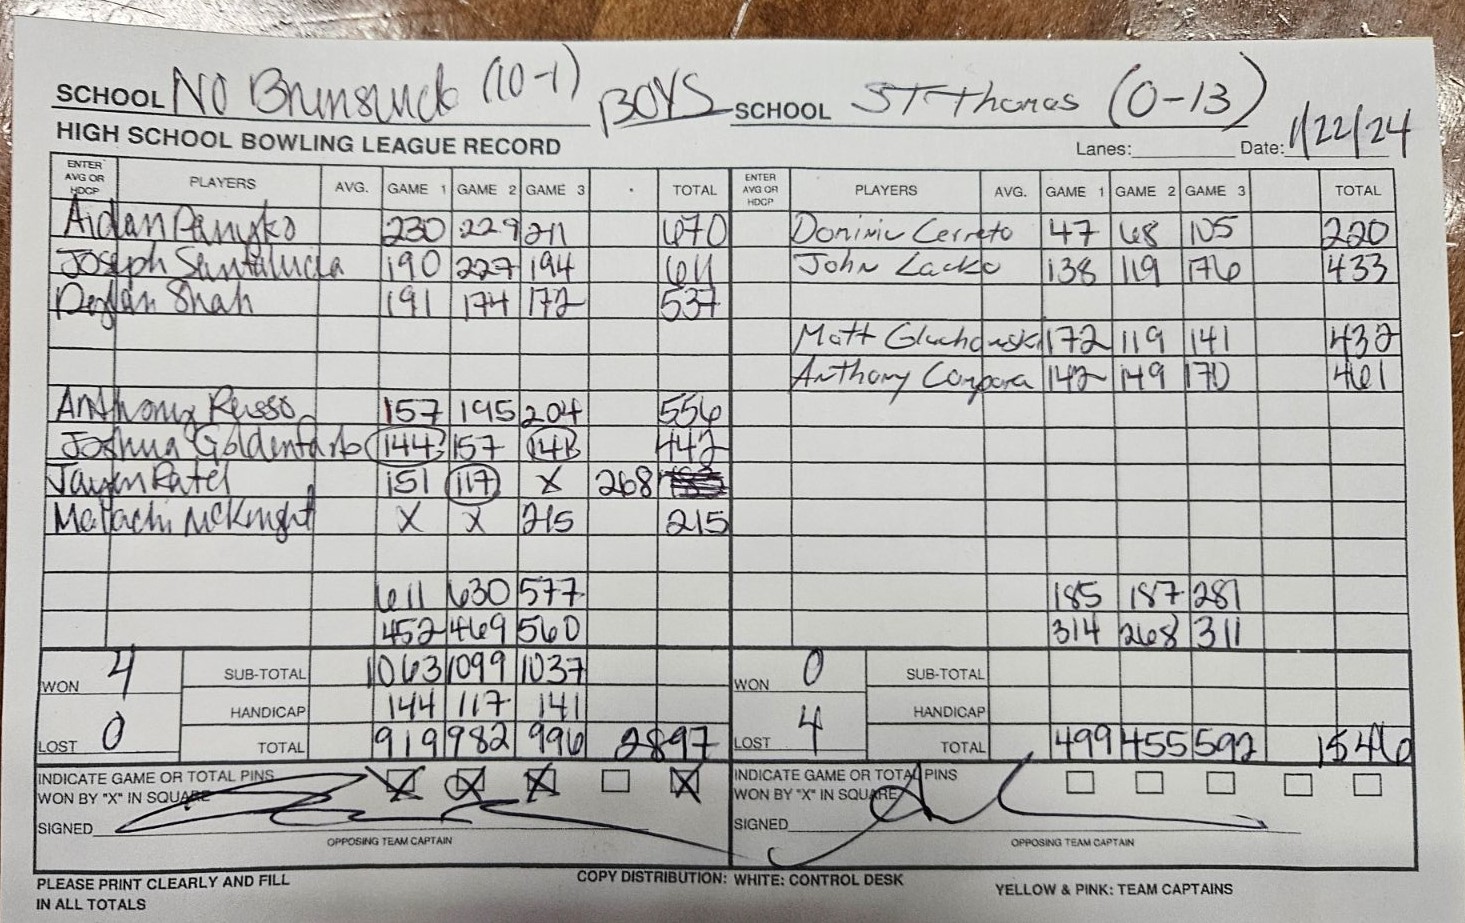 SCHOOL NO Brunswick (10-1) BOYS SCHOOL ST Thomas (0-13)
HIGH SCHOOL BOWLING LEAGUE RECORD Lanes: Date: 1/22/24
ENTER AVG OR HDCP PLAYERS AVG. GAME 1 GAME 2 GAME 3 TOTAL ENTER AVG OR HDCP PLAYERS AVG. GAME 1 GAME 2 GAME 3 TOTAL
Aidan 230 229 211 670 Dominic Cerreto 47 68 105 220
Joseph Santalucia 190 227 194 611 John Lacko 138 119 176 433
Shah 191 174 172 537
Matt Gluchowski 172 119 141 432
Anthony Campora 142 149 170 461
Anthony Russo 157 195 204 556
Joshua Goldenfarb 144 157 141 442
Jayen Patel 151 117 X 268
Malachi McKnight X X 215 215
611 630 577 185 187 281
452 469 560 314 268 311
WON 4 SUB-TOTAL 1063 1099 1037 WON 0 SUB-TOTAL
HANDICAP 144 117 141 HANDICAP
LOST 0 TOTAL 919 982 996 2897 LOST 4 TOTAL 499 455 592 1546
INDICATE GAME OR TOTAL PINS X X X X INDICATE GAME OR TOTAL PINS
WON BY "X" IN SQUARE WON BY "X" IN SQUARE
SIGNED SIGNED
OPPOSING TEAM CAPTAIN OPPOSING TEAM CAPTAIN
PLEASE PRINT CLEARLY AND FILL COPY DISTRIBUTION: WHITE: CONTROL DESK YELLOW & PINK: TEAM CAPTAINS
IN ALL TOTALS